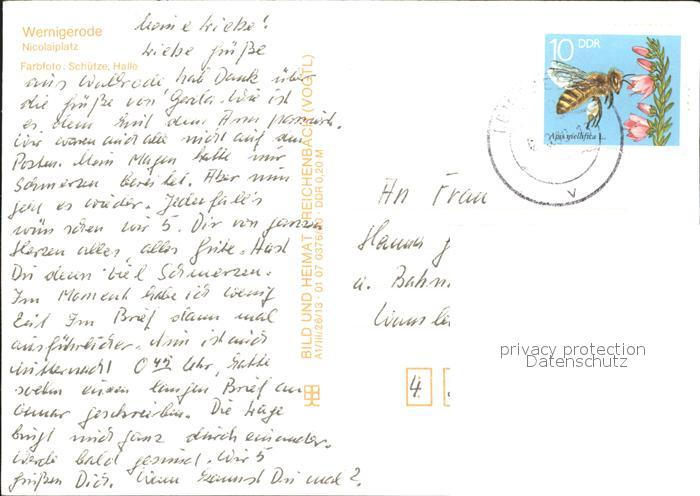 Wernigerode
Nicolaiplatz
Farbfoto: Schütze, Halle
Meine Liebe!
Liebe Grüße
aus Walbrode hab Dank über
die Grüße von Gerda. Wie ist
es denn mit dem Arm passiert.
Wir waren auch alle nicht auf dem
Posten. Mein Magen hatte mir
Schmerzen bereitet. Aber nun
geht es wieder. Jedenfalls
wünschen wir 5. Dir von ganzem
Herzen alles, alles Gute. Hast
Du denn viel Schmerzen.
Im Moment habe ich wenig
Zeit Im Brief dann mal
ausführlicher. Nun ist auch
Mitternacht Uhr, hatte
soeben einen langen Brief an
geschrieben. Die Lage
bringt mich ganz durcheinander.
Werde bald gesund. Wir 5
grüßen Dich. Wann kommst Du mal?
BILD UND HEIMAT REICHENBACH (VOGTL)
A1/III/26/13 · 01 07 0376/ · DDR 0,20 M
10 DDR
Apis mellifica L.
V
An Frau
Hanna
a. Bahn
4.
privacy protection
Datenschutz